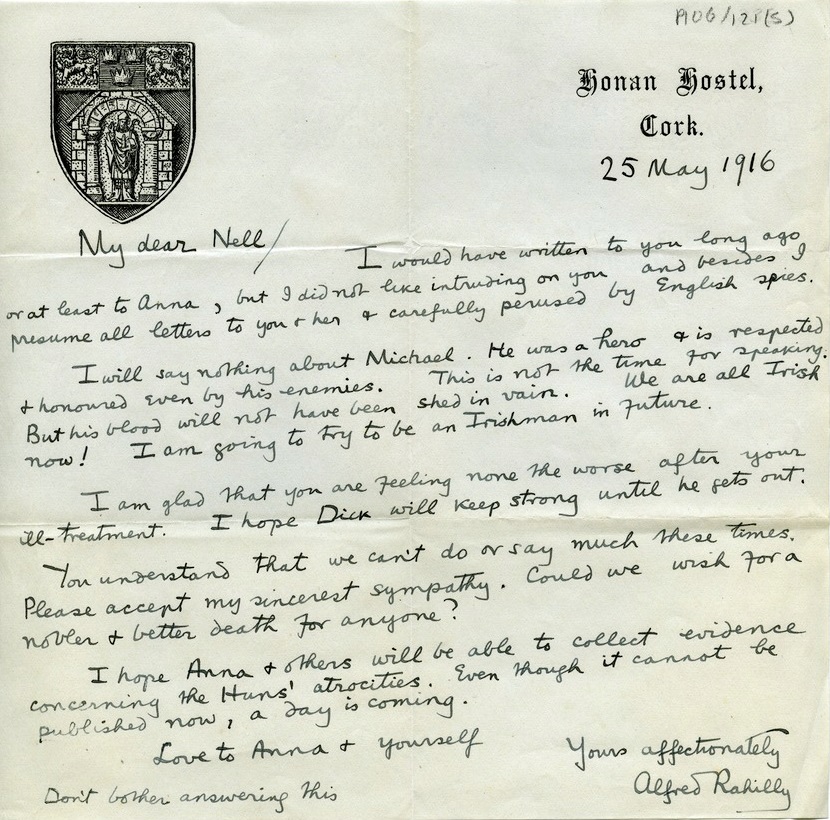 P106/128(5)
Honan Hostel,
Cork.
25 May 1916
My dear Nell/
I would have written to you long ago
or at least to Anna, but I did not like intruding on you and besides I
presume all letters to you & her & carefully perused by English spies.
I will say nothing about Michael. He was a hero & is respected
& honoured even by his enemies. This is not the time for speaking.
But his blood will not have been shed in vain. We are all Irish
now! I am going to try to be an Irishman in future.
I am glad that you are feeling none the worse after your
ill-treatment. I hope Dick will keep strong until he gets out.
You understand that we can't do or say much these times.
Please accept my sincerest sympathy. Could we wish for a
nobler & better death for anyone?
I hope Anna & others will be able to collect evidence
concerning the Huns' atrocities. Even though it cannot be
published now, a day is coming.
Love to Anna & yourself
Yours affectionately
Alfred Rahilly
Don't bother answering this